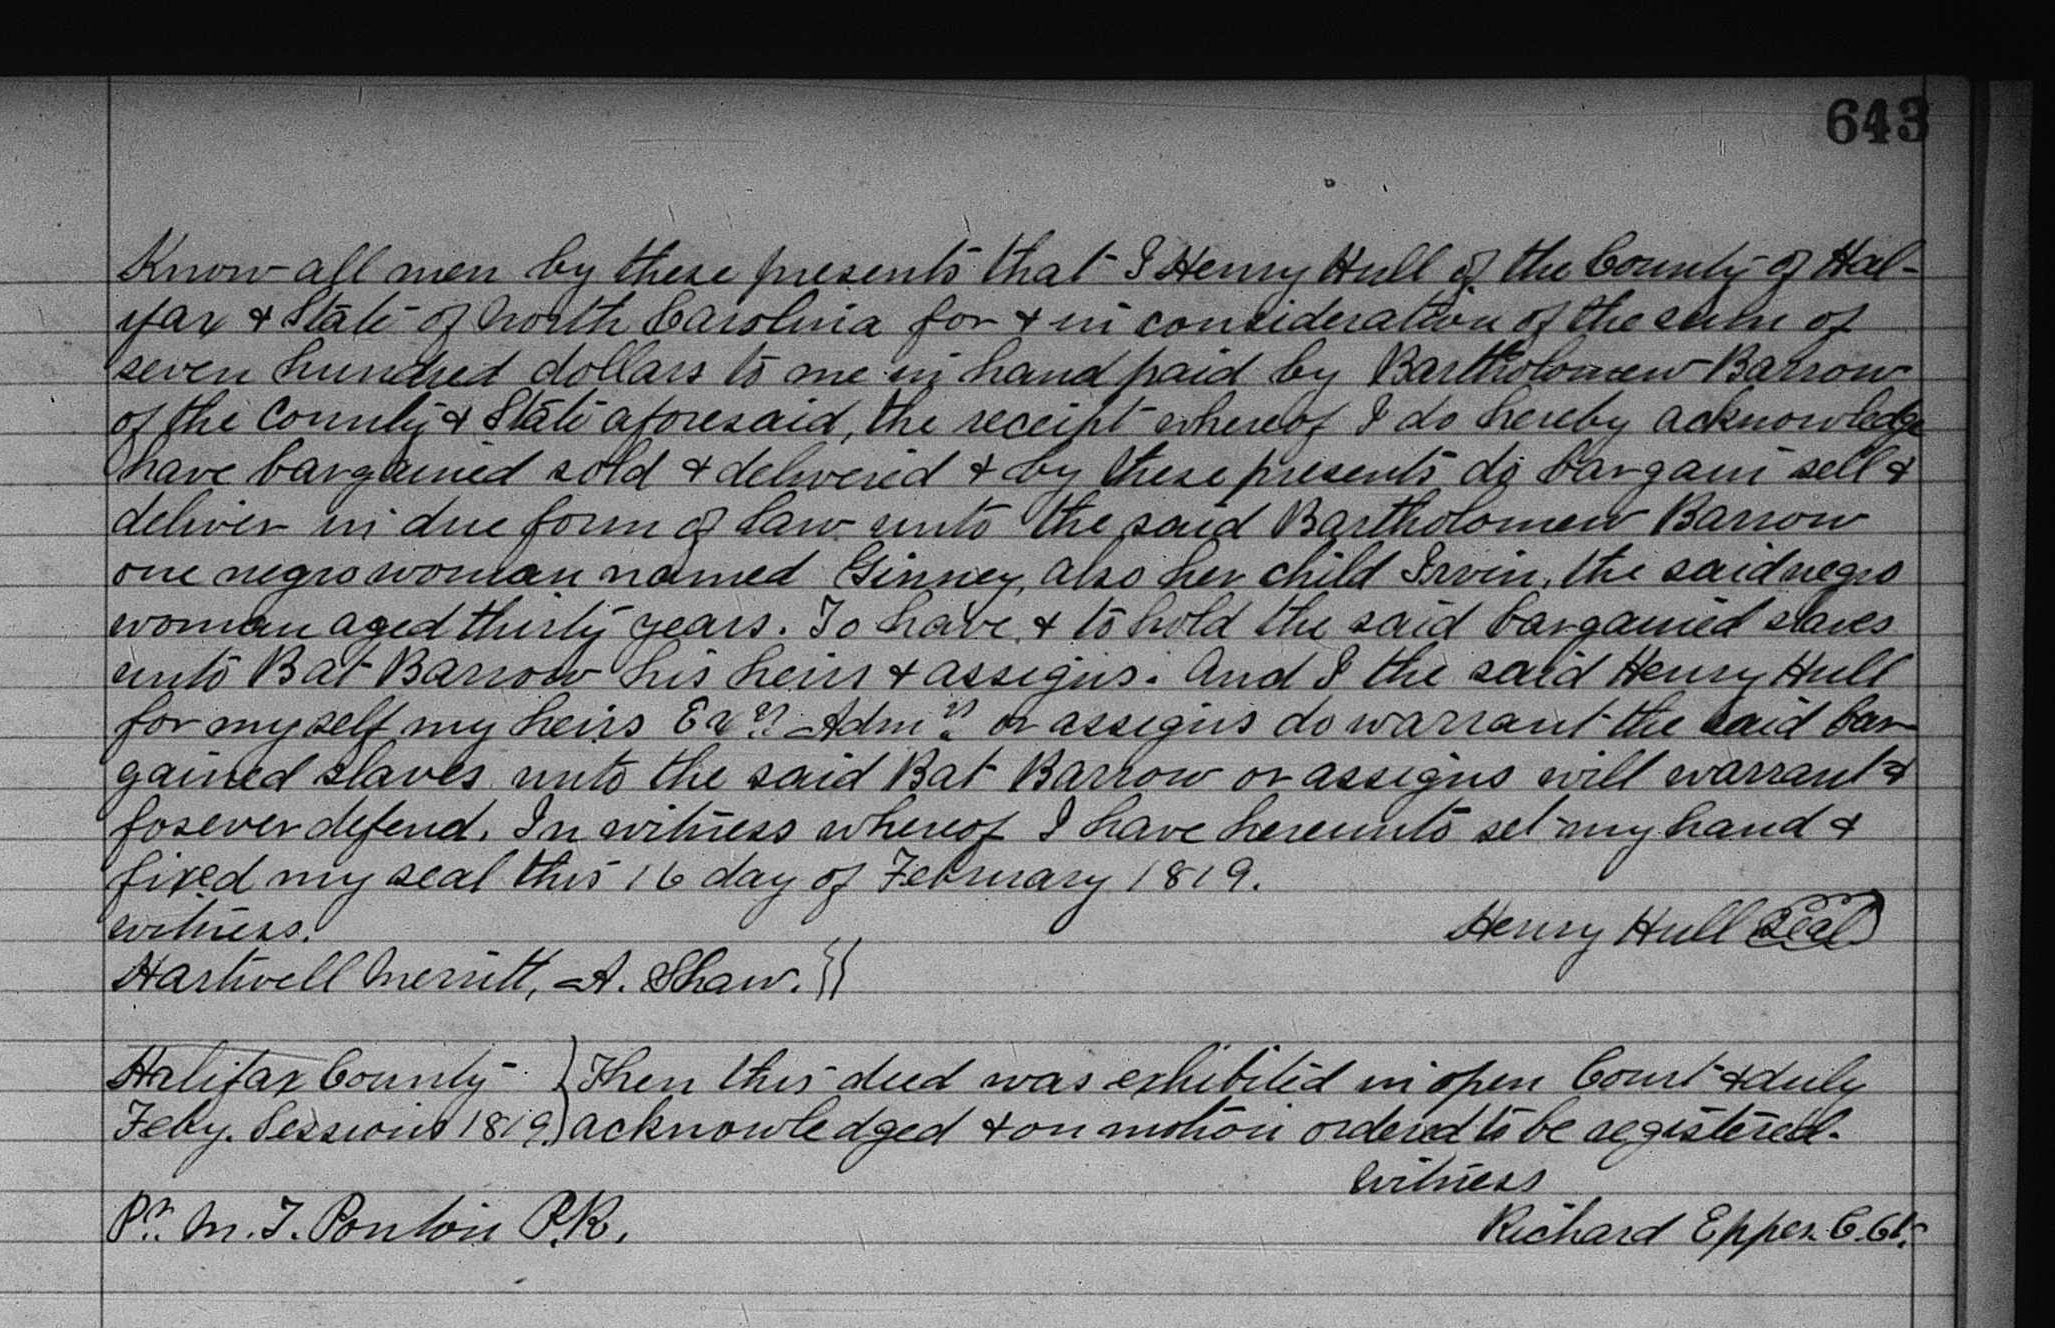 643
Know all men by these presents that I Henry Hull of the County of Hal-
ifax & State of North Carolina for & in consideration of the sum of
seven hundred dollars to me in hand paid by Bartholomew Barrow
of the County & State aforesaid, the receipt whereof I do hereby acknowledge
have bargained sold & delivered & by these presents do bargain sell &
deliver in due form of law unto the said Bartholomew Barrow
one negro woman named Ginney, also her child Irvin, the said negro
woman aged thirty years. To have & to hold the said bargained slaves
unto Bat Barrow his heirs & assigns. And I the said Henry Hull
for myself my heirs Exrs Admrs or assigns do warrant the said bar-
gained slaves unto the said Bat Barrow or assigns will warrant &
forever defend. In witness whereof I have hereunto set my hand &
fixed my seal this 16 day of February 1819.
witness.
Henry Hull Seal
Hartwell Merritt, A. Shaw.
Halifax County } Then this deed was exhibited in open Court & duly
Feby. Sessions 1819.} acknowledged & on motion ordered to be registered.
Witness
Pr. M. T. Ponton P.R.
Richard Eppes. C. Ct.